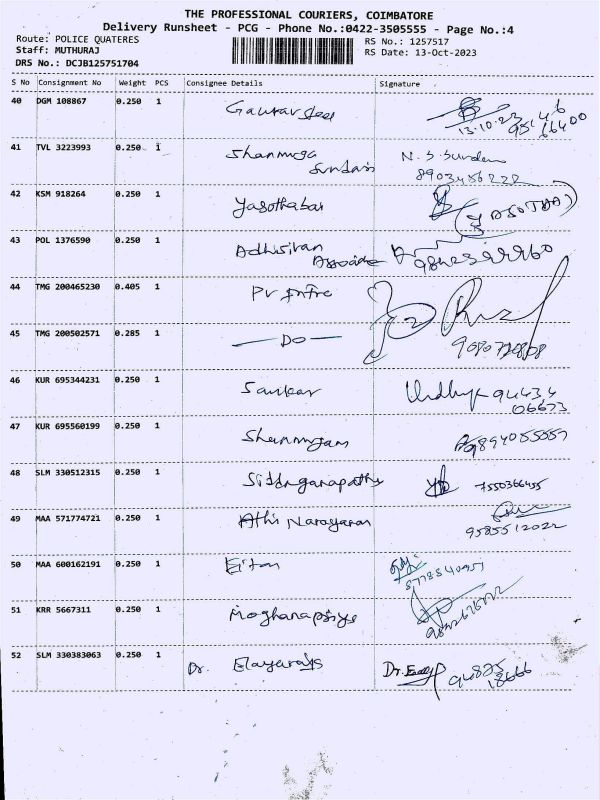 THE PROFESSIONAL COURIERS, COIMBATORE
Delivery Runsheet - PCG - Phone No.:0422-3505555 - Page No.:4
Route: POLICE QUATERES
Staff: MUTHURAJ
DRS No.: DCJB125751704
RS No.: 1257517
RS Date: 13-Oct-2023
S No Consignment No Weight PCS Consignee Details Signature
40 DGM 108867 0.250 1
13.10.23
66400
41 TVL 3223993 0.250 1 Shanmuga
Sundari
N. S. Sundari
8903456222
42 KSM 918264 0.250 1 Yasothabai
(YASOTHA)
43 POL 1376590 0.250 1 Adhisivan
Associate
44 TMG 200465230 0.405 1
45 TMG 200502571 0.285 1 — DO —
46 KUR 695344231 0.250 1 Sankar 94434
06673
47 KUR 695560199 0.250 1 Shanmugam 9894055557
48 SLM 330512315 0.250 1 Siddhganapathy 7550366455
49 MAA 571774721 0.250 1 Athi Narayanan
9585512022
50 MAA 600162191 0.250 1
51 KRR 5667311 0.250 1 Moghanapriya
52 SLM 330383063 0.250 1 Dr. Elayaraja Dr. 94875
18666